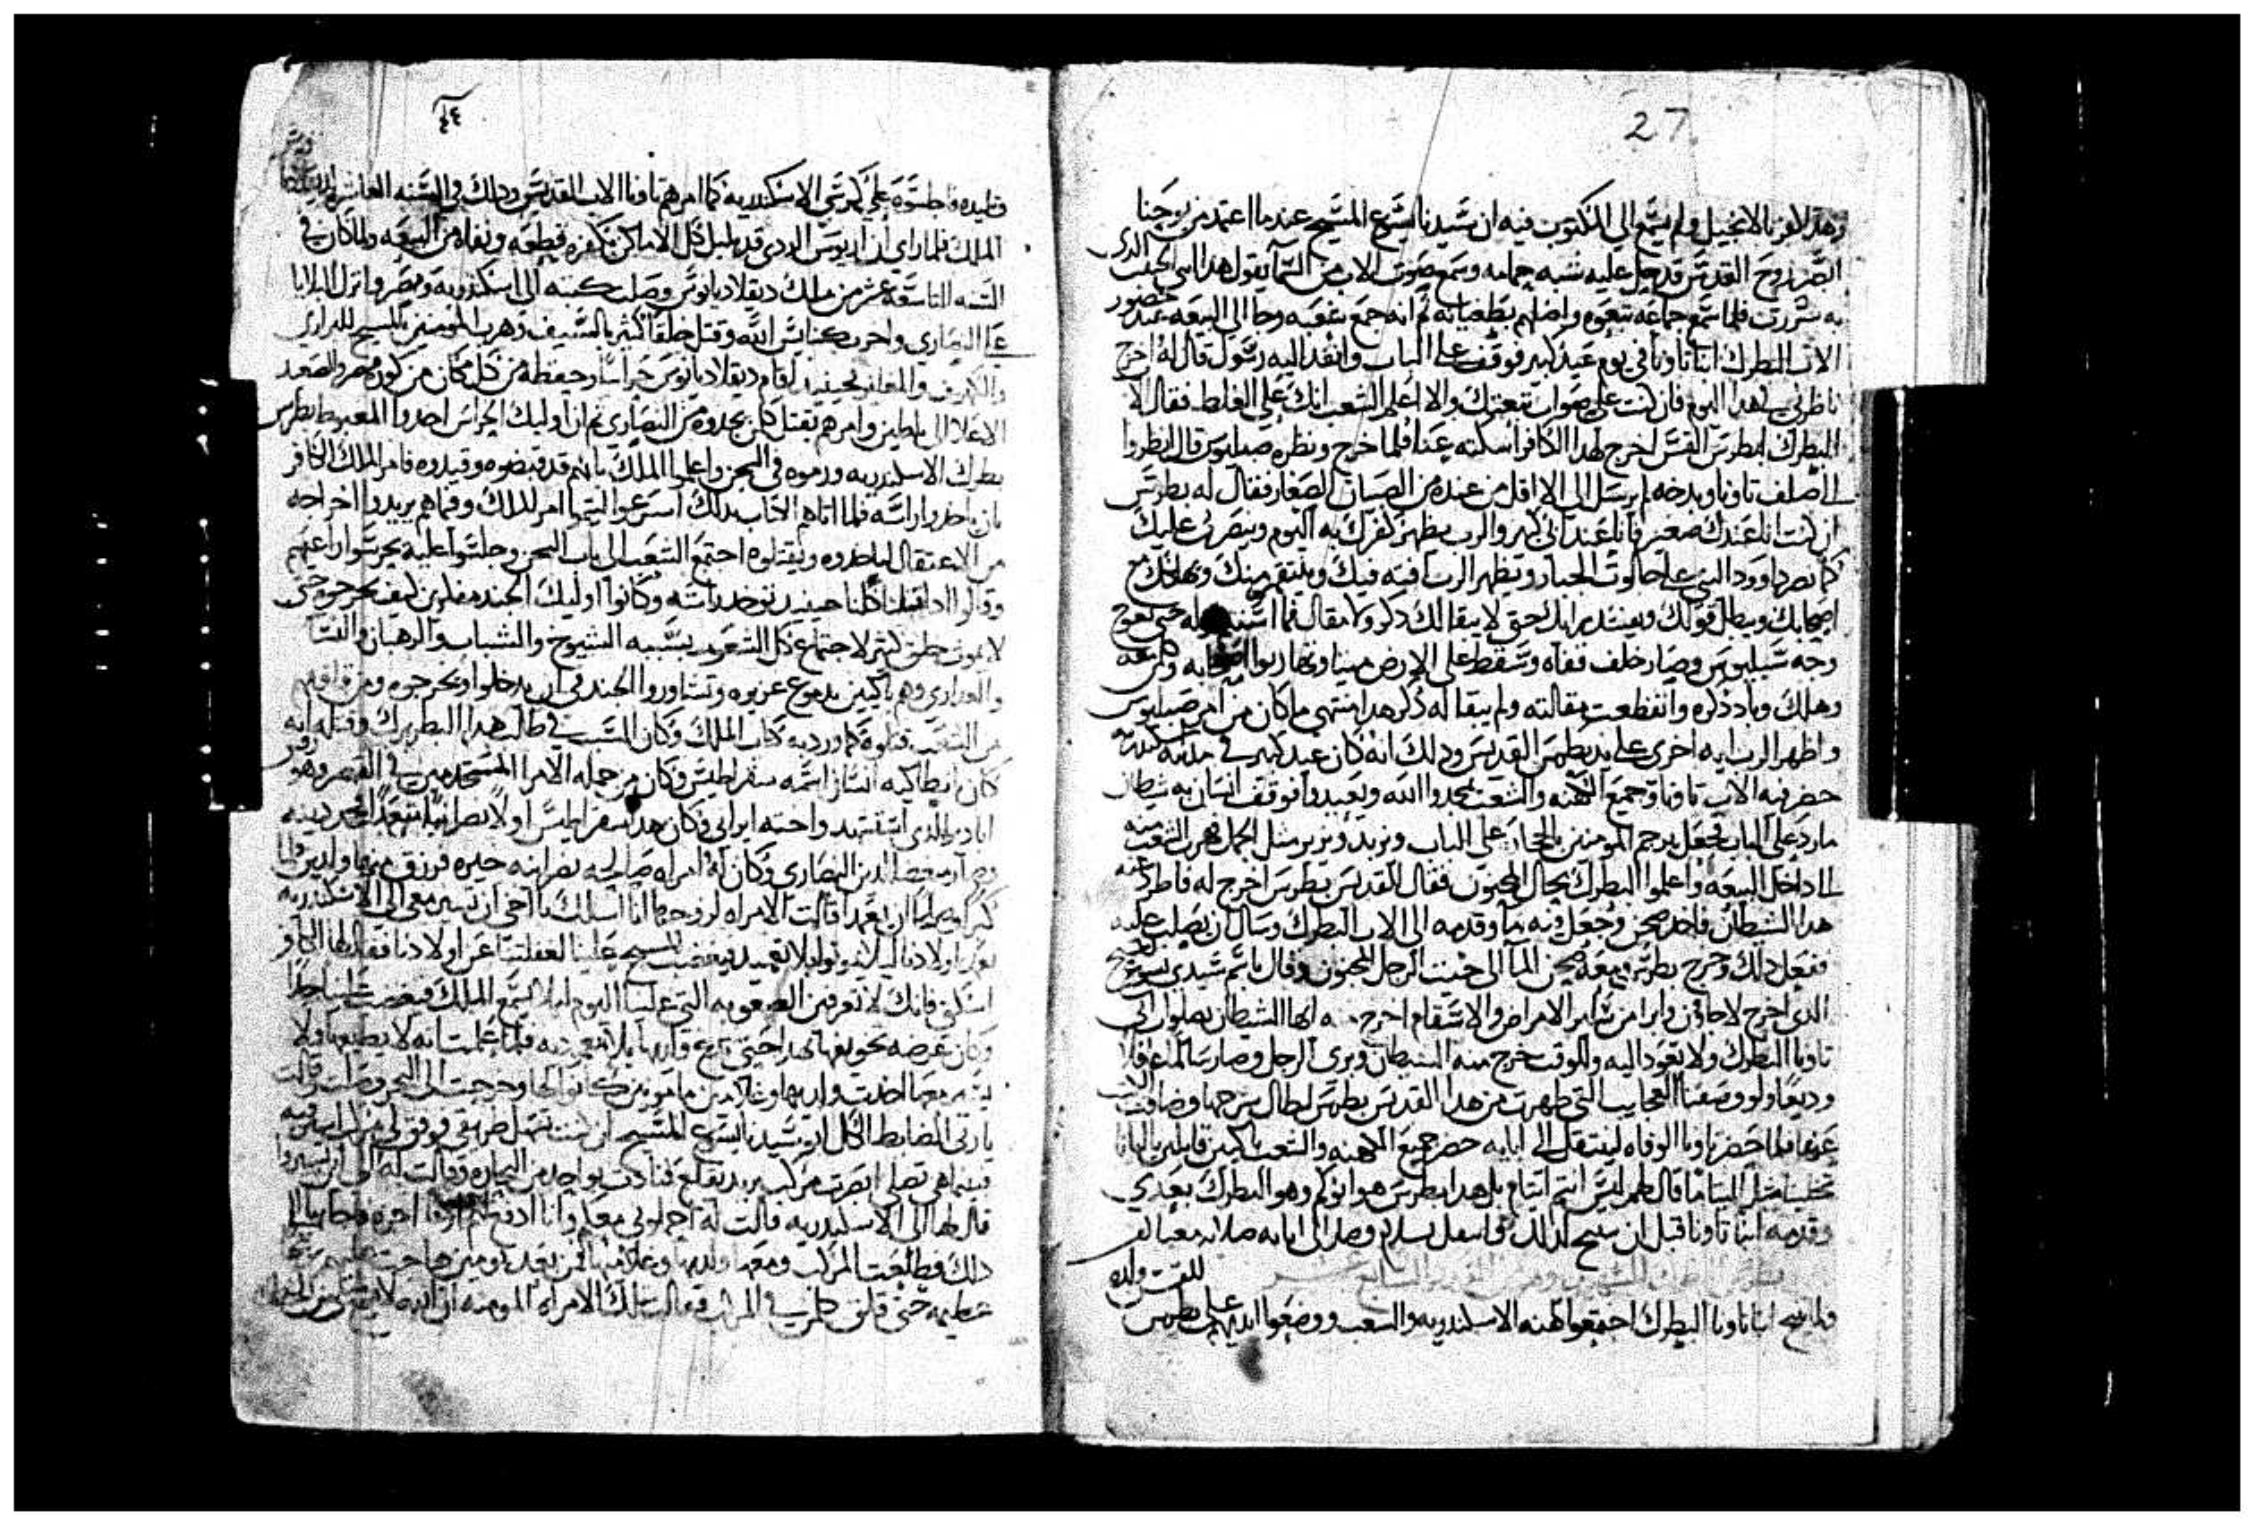 27
وهذا لا يقر بالانجيل ولم يسمع الى المكتوب فيه ان سيدنا يسوع المسيح عندما اعتمد من يوحنا
ابصر روح القدس قد حل عليه شبه حمامه وسمع صوت الاب من السما يقول هذا ابني الحبيب الذي
به سررت فلما سمع جماعه تبعوه واضلهم بطغيانه ثم انه جمع شعبه وجا الى البيعه عند حضور
الاب البطرك انبا تاونا في يوم عيد كبير فوقف على الباب وانفد اليه رسول قال له اخرج
ناظرني في هذا اليوم فان كنت على صواب تبعتك والا اعلم الشعب انك على الغلط فقال الاب
البطرك لبطرس القس اخرج لهذا الكافر اسكته عنا فلما خرج ونظره صبليوس قال انظروا
الى صلف تاونا وبدخه لم يرسل الى الا اقل من عنده من الصبيان الصغار فقال له بطرس
ان كنت انا عندك صغير فانا عند ابي كبير والرب يظهر كفرك به اليوم وينصرني عليك
كما نصر داوود النبي على جالوت الجبار ويظهر الرب افته فيك وينتقم منك ويهلكك مع
اصحابك ويبطل قولك حتى لا يبقا لك ذكر ولا مقال فما استتم قوله حتى تعوج
وجه سبليوس وصار خلف قفاه وسقط على الارض ميتا وتهاربوا اصحابه وكل من معه
وهلك وباد ذكره وانقطعت مقالته ولم يبقا له ذكر هذا منتهى ما كان من امر صبليوس
واظهر الرب ايه اخرى على يد بطرس القديس وذلك انه كان عيد كبير في مدينه
حضر فيه الاب تاونا وجميع الكهنه والشعب ليمجدوا الله ويعيدوا فوقف انسان به شيطان
مارد على الباب فجعل يرجم المومنين بالحجاره على الباب ويزبد ويزبر مثل الجمل فهرب الشعب منه
الى داخل البيعه واعلموا البطرك بحال المجنون فقال القديس بطرس اخرج له فاطرد عنه
هذا الشيطان فاخد صحن وجعل فيه ما وقدمه الى الاب البطرك وسال ان يصلب عليه
ففعل ذلك وخرج بطرس ومعه صحن الما الى حيث الرجل المجنون وقال باسم سيدي يسوع المسيح
الذي اخرج لاجاون وابرا من ساير الامراض والاسقام اخرج منه ايها الشيطان بصلوات ابي
تاونا البطرك ولا تعود اليه وللوقت خرج منه الشيطان وبرى الرجل وصار سالما عاقلا
وديعا ولو وصفنا العجايب التي ظهرت من هذا القديس بطرس لطال شرحها وضاقت الكتب
عنها فلما حضر تاونا الوفاه لينتقل الى ابايه حضر جميع الكهنه والشعب باكيين قايلين يا ابانا
تخلينا مثل اليتاما قال لهم ليس انتم ايتام بل هذا بطرس هو ابوكم وهو البطرك بعدي
وقدمه انبا تاونا قبل ان يتنيح وانتقل بسلام وصار الى ابايه صلاته معنا
بطرس البطرك الشهيد وهو من العدد السابع عشر
ولما تنيح انبا تاونا البطرك اجتمعوا كهنه الاسكندريه والشعب ووضعوا ايديهم على بطرس القس ولده
٤٤
وتلميده فاجلسوه على كرسي الاسكندريه كما امرهم تاونا الاب القديس وذلك في السنه العاشره
الملك فلما راى ان اريوس الردي قد بلبل كل الاماكن بكفره قطعه ونفاه من البيعه ولما كان في
السنه التاسعه عشر من ملك ديقلاديانوس وصلت كتبه الى اسكندريه ومصر وانزل البلايا
على النصارى واخرب كنايس الله وقتل خلقا كثير بالسيف وهرب المومنين بالمسيح للبراري
والكهوف والمغاير حينيد اقام ديقلاديانوس حراسا وحفظه من كل مكان من كور مصر والصعيد
الاعلا الى وامرهم بقتل كل من يجدوه من النصارى ثم ان اوليك الحراس اخدوا المغبوط بطرس
بطرك الاسكندريه ورموه في السجن واعلموا الملك بانهم قد قبضوه وقيدوه فامر الملك الكافر
بان ياخدوا راسه فلما اتاهم الكتاب بذلك اسرعوا ليتموا امر الملك وفيما هم يريدوا اخراجه
من الاعتقال لياخدوه ويقتلوه اجتمع الشعب الى باب السجن وجلسوا عليه يحرسوا راعيهم
وقالوا ادا قتلنا كلنا حينيد توخد راسه وكانوا اوليك الجند مفكرين كيف يخرجوه حتى
لا يموت خلق كثير لاجتماع كل الشعوب بسببه الشيوخ والشباب والرهبان والنسا
والعدارى وهم باكيين بدموع غزيره وتشاوروا الجند في ان يدخلوا ويخرجوه ومن قاومهم
من الشعب قتلوه كما ورد به كتاب الملك وكان السبب في طلب هذا البطريرك وقتله انه
كان بانطاكيه انسان اسمه سقراطيس وكان من جمله الامرا المستخدمين في القصر وهو رفيق
ابادير الذي استشهد واخته ايراني وكان هذا سقراطيس اولا نصرانيا ثم بعد ذلك جحد دينه
وصار مبغضا لدين النصارى وكان له امراه صالحه نصرانيه خيره فرزق منها ولدين ولما
كبرا قالت الامراه لزوجها انا اسلك يا اخي ان تسير معي الى الاسكندريه
نعمد اولادنا ليلا يموتوا بلا تعميد فيغضب المسيح علينا لغفلتنا عن اولادنا فقال لها الكافر
اسكتي فانك لا تعرفين الصعوبه التي علينا اليوم ليلا يسمع الملك فيغضب علينا
وكان غرضه تخويفها بهذا حتى فلما علمت انه لا يطيعها ولا
يسير معها اخدت ولديها وغلامين مامونين كانوا لها وخرجت الى البحر وصلت وقالت
يا ربي الضابط الكل ابو سيدنا يسوع المسيح ان كنت تسهل طريقي ووفق لي مركب اسير فيه
فبينما هي تصلي ابصرت مركب يريد يقلع فنادت بواحد من البحاره وقالت له الى اين تسيروا
قال لها الى الاسكندريه قالت له احملوني معكم وانا ادفع لكم اجره فاجابها الى
ذلك فطلعت المركب ومعها ولديها وغلامينها فمن بعد يومين هاجت عليهم
عظيمه حتى قلق كل من في المركب فقالت تلك الامراه المومنه ان الله